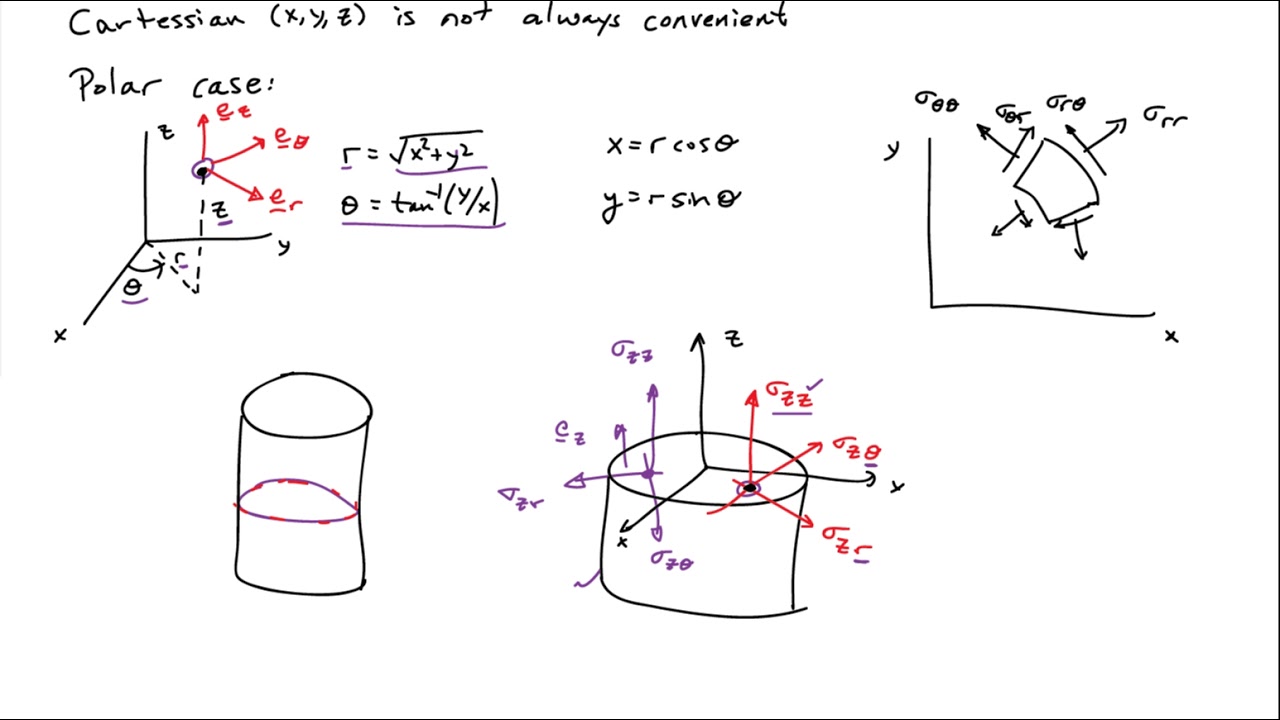 Cartessian (x,y,z) is not always convenient
Polar case:
z
e_z
e_θ
e_r
z
y
r
θ
x
r = √x²+y²
θ = tan⁻¹(y/x)
x = r cosθ
y = r sinθ
σθθ
σθr
σrθ
σrr
y
x
z
σzz
σzz ✓
e_z
σzθ
σzr
x
x
σzθ
σzr